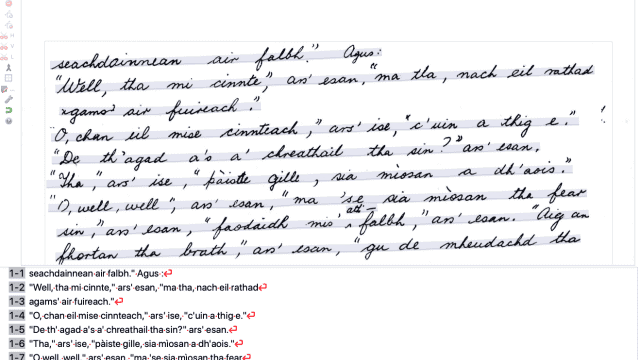 seachdainnean air falbh." Agus:
"Well, tha mi cinnte," ars' esan, "ma tha, nach eil rathad
agams' air fuireach."
"O, chan eil mise cinnteach," ars' ise, "c'uin a thig e."
"De th'agad a's a' chreathail tha sin?" ars' esan.
"Tha," ars' ise, "pàiste gille, sia mìosan a dh'aois."
"O, well, well", ars' esan, "ma 'se sia mìosan tha fear
sin," ars' esan, "faodaidh mis' falbh," ars' esan. "Aig an
fhortan tha brath," ars' esan, "gu de mheudachd tha
1-1 seachdainnean air falbh." Agus:
1-2 "Well, tha mi cinnte," ars' esan, "ma tha, nach eil rathad
1-3 agams' air fuireach."
1-4 "O, chan eil mise cinnteach," ars' ise, "c'uin a thig e."
1-5 "De th' agad a's a' chreathail tha sin?" ars' esan.
1-6 "Tha," ars' ise, "pàiste gille, sia mìosan a dh'aois."
1-7 "O well, well", ars' esan, "ma 'se sia mìosan tha fear